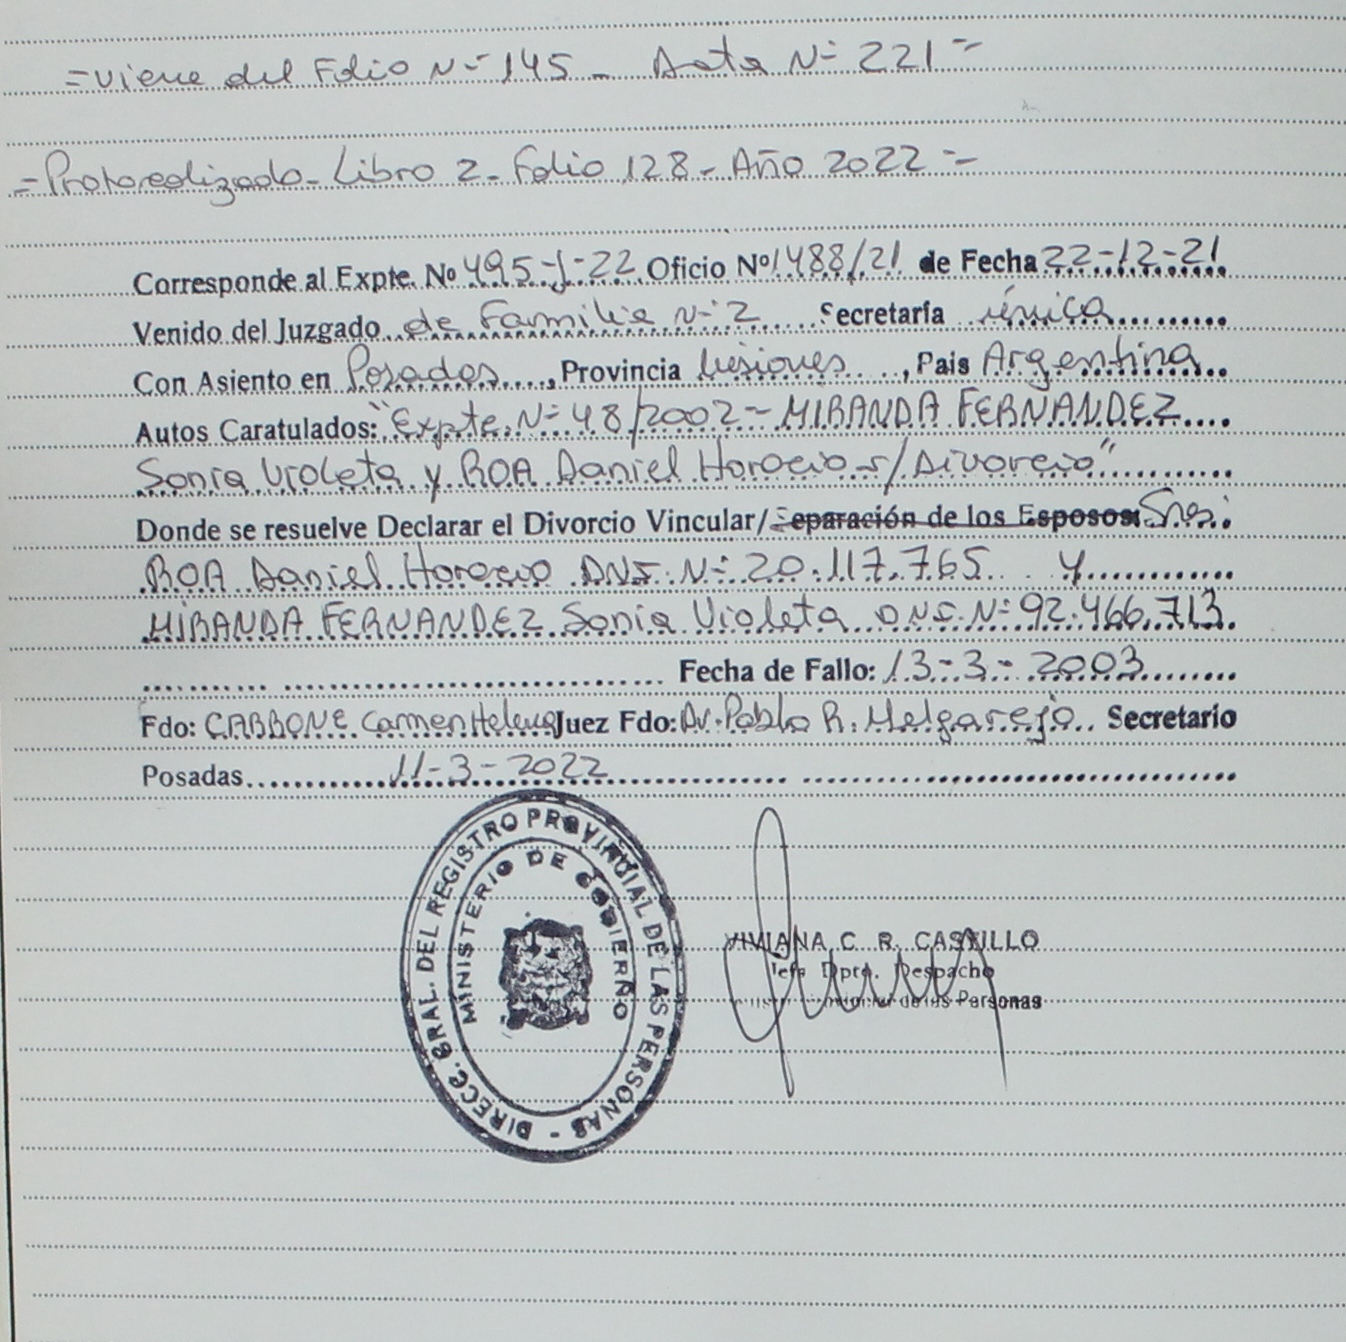 =Viene del Folio Nº 145 - Acta Nº 221=
=Protocolizado - Libro 2 - Folio 128 - Año 2022=
Corresponde al Expte. Nº 495-J-22 Oficio Nº 1488/21 de Fecha 22-12-21
Venido del Juzgado de Familia Nº 2 Secretaría única
Con Asiento en Posadas, Provincia Misiones, Pais Argentina
Autos Caratulados: "Expte. Nº 48/2002 - MIRANDA FERNANDEZ
Sonia Violeta y ROA Daniel Horacio s/Divorcio"
Donde se resuelve Declarar el Divorcio Vincular/Separación de los Esposos: Sres.
ROA Daniel Horacio DNI. Nº 20.117.765 y
MIRANDA FERNANDEZ Sonia Violeta D.N.I. Nº 92.466.713.
Fecha de Fallo: 13-3-2003
Fdo: CARBONE Carmen Helena Juez Fdo: Dr. Pablo R. Melgarejo Secretario
Posadas 11-3-2022
DIRECC. GRAL. DEL REGISTRO PROVINCIAL DE LAS PERSONAS -
MINISTERIO DE GOBIERNO
VIVIANA C. R. CASTILLO
Jefa Dpto. Despacho
de las Personas